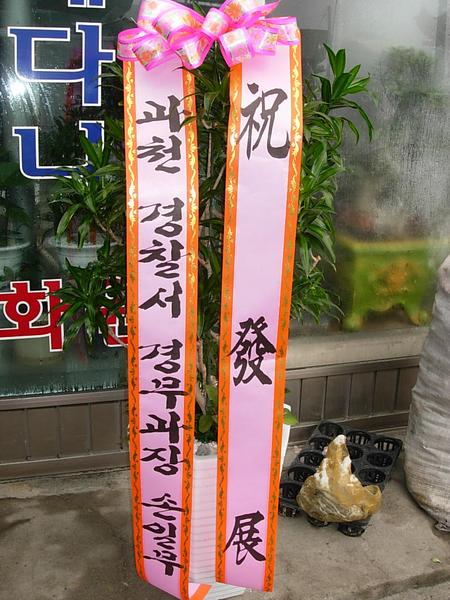 祝 發展
과천 경찰서 경무과장 손일무
다
화